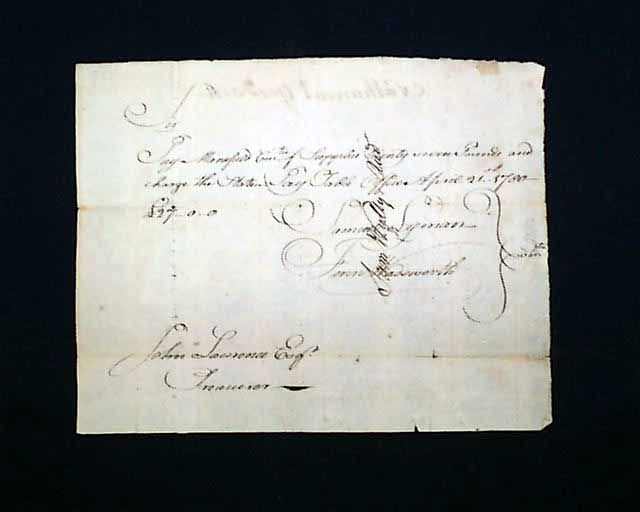 Sir
Pay Mansfield Comtee of Supplies Twenty seven Pounds and
charge the State. Pay Table Office April 21st 1780
£27-0-0
Samuel Lyman
Fenn Wadsworth
Comtee
John Lawrence Esqr.
Treasurer